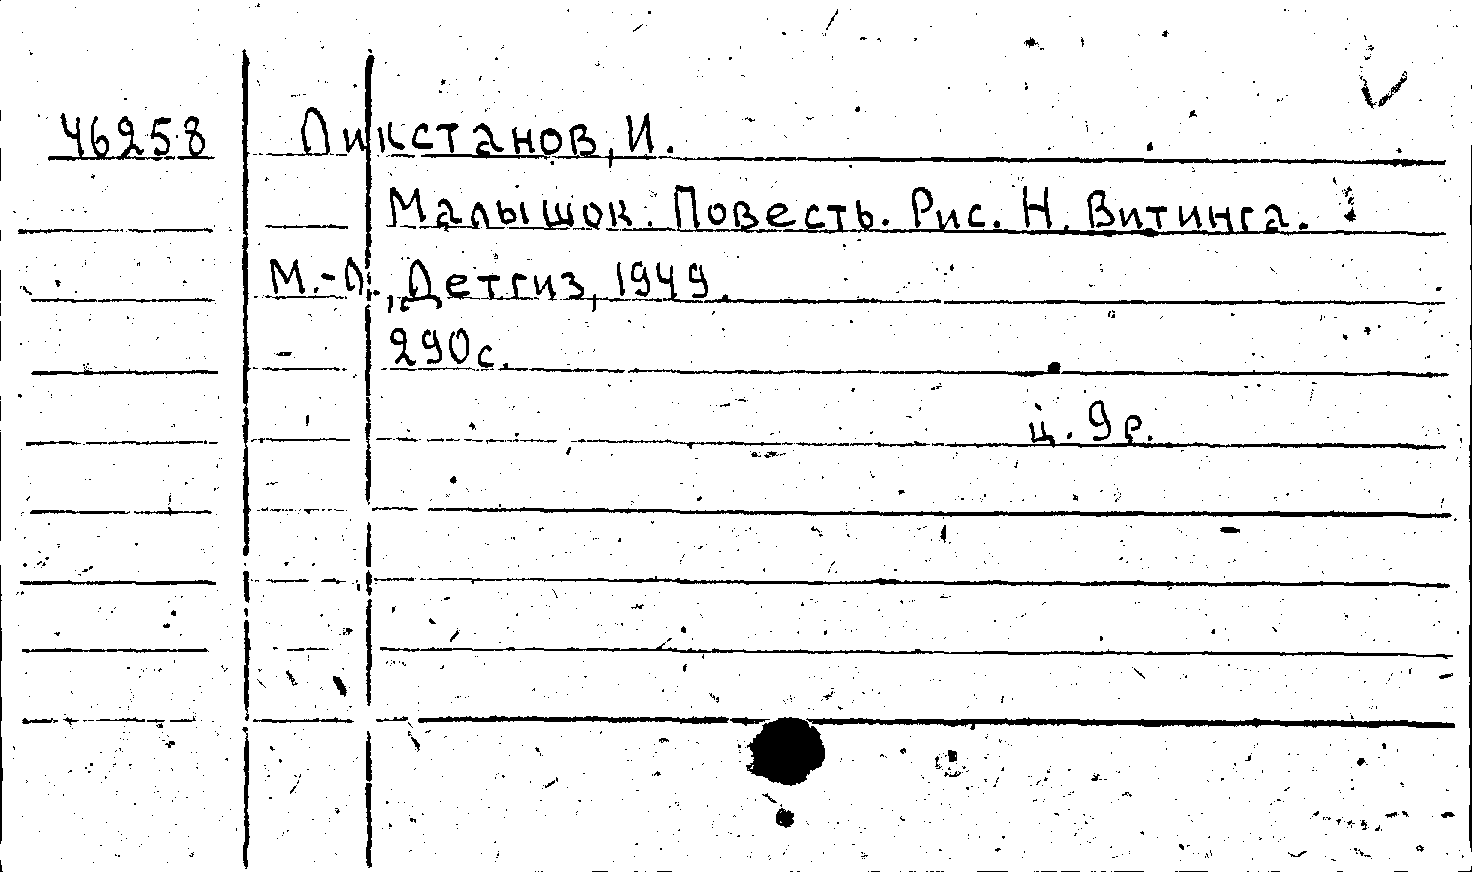 46258 Ликстанов, И.
Малышок. Повесть. Рис. Н. Витинга.
М.-Л., Детгиз, 1949.
290с.
ц. 9р.